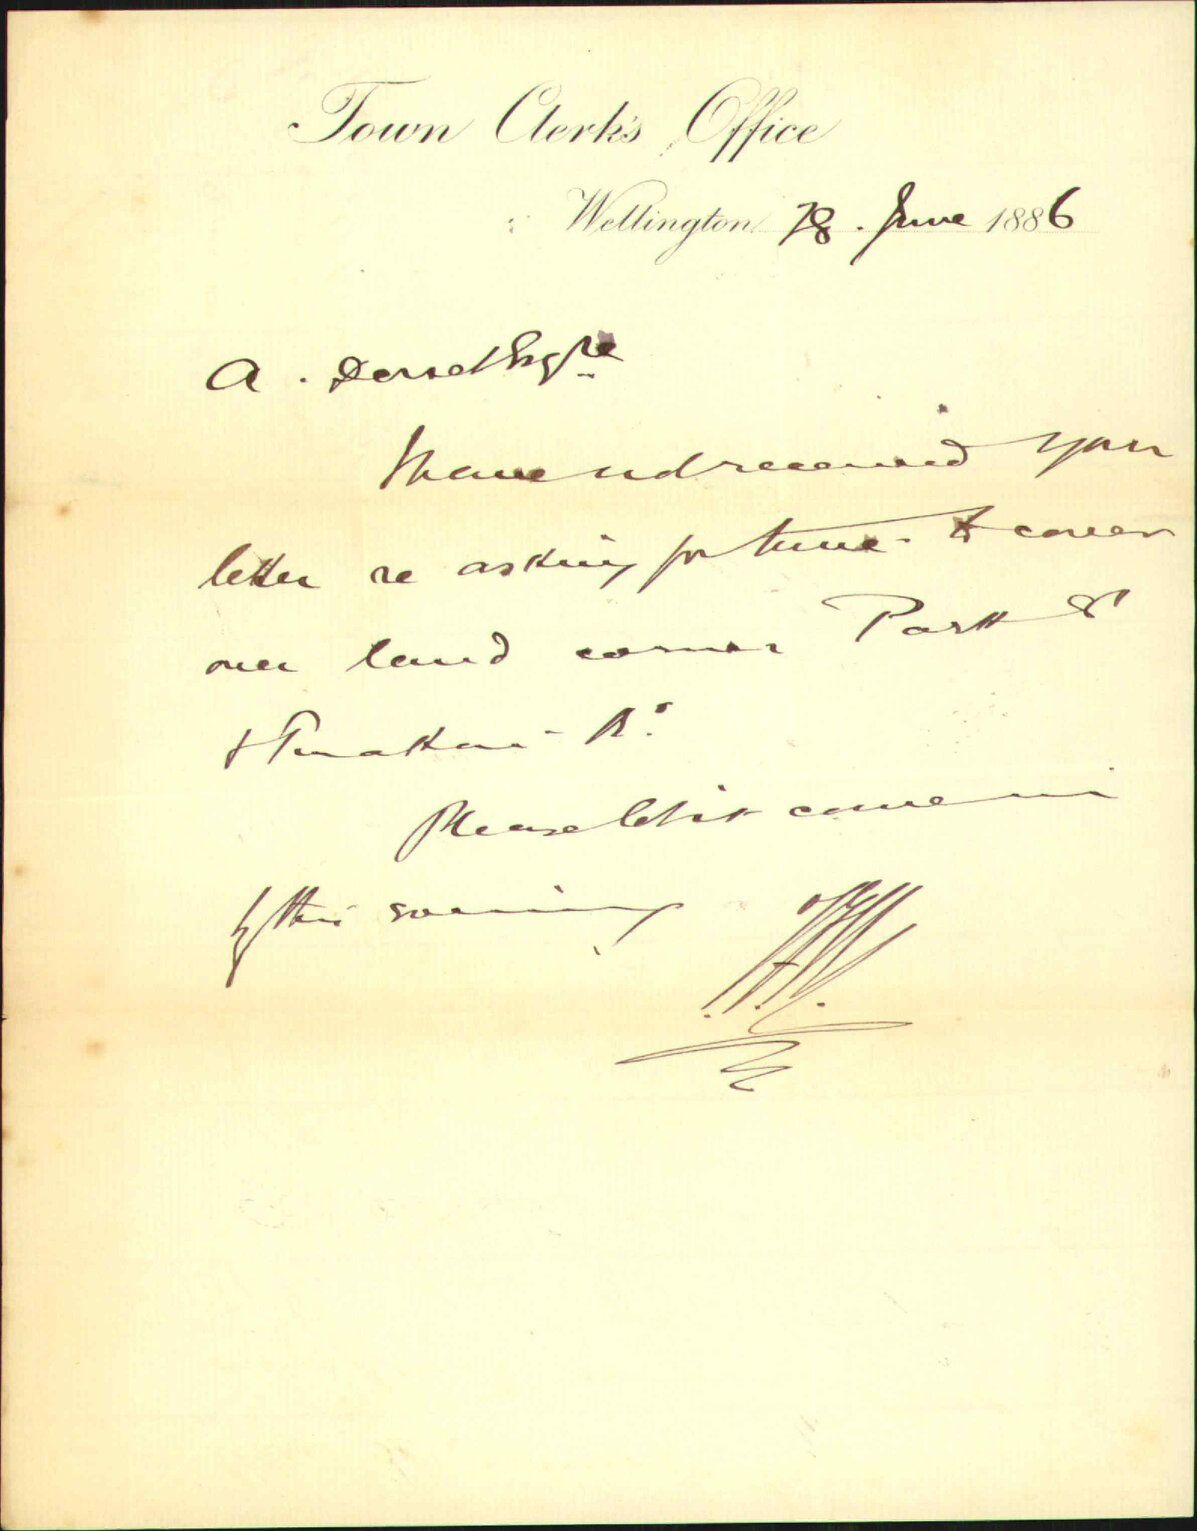 Town Clerk's Office
Wellington 28. June 1886
A. Dorset Esqre
I have not received your
letter re asking for time to convey
over land corner Park St
& Tinakori Rd
Please let it come in
by this evening